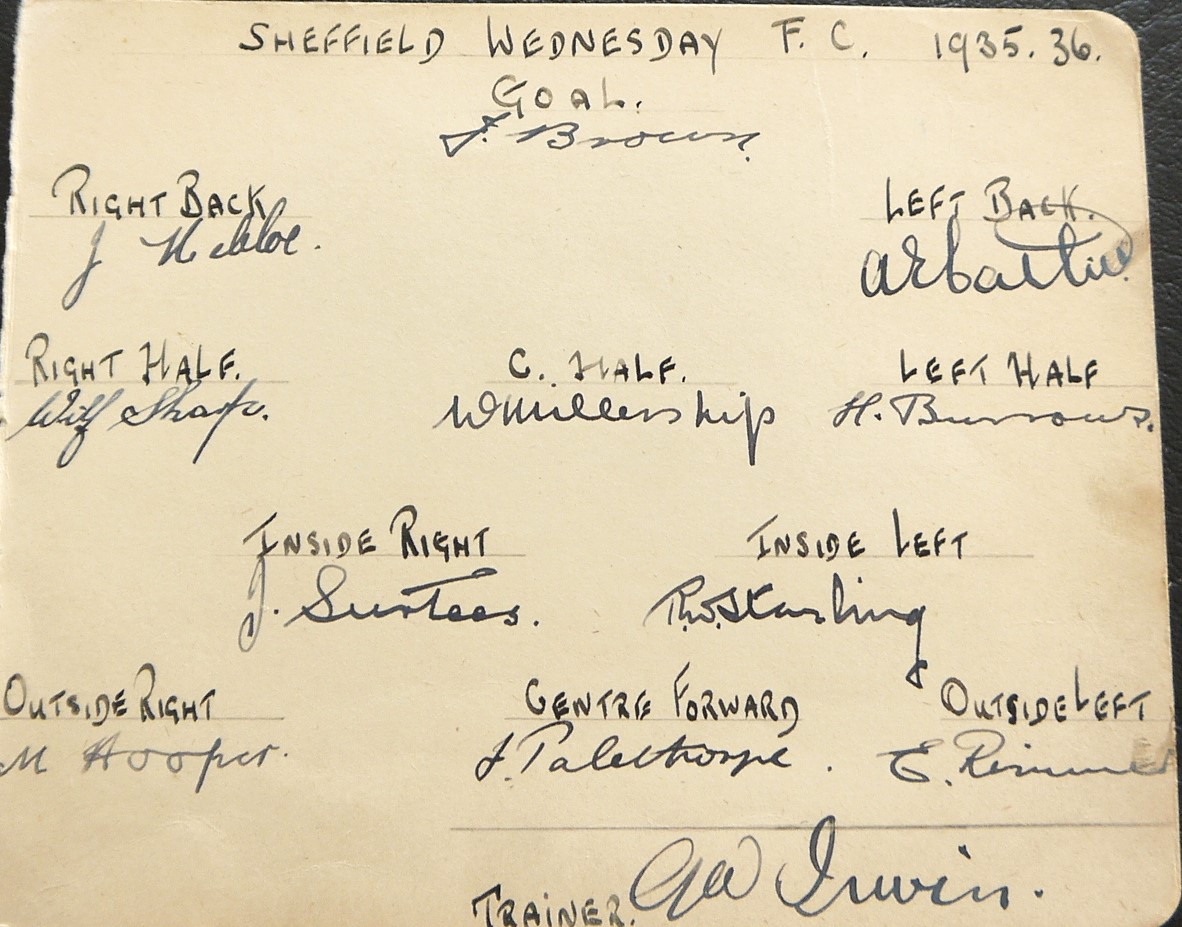 SHEFFIELD WEDNESDAY F. C. 1935.36.
GOAL.
J. Brown.
RIGHT BACK LEFT BACK.
J Nibloe.
RIGHT HALF. C. HALF. LEFT HALF
Wilf Sharp. W Millership H. Burrows.
INSIDE RIGHT INSIDE LEFT
J. Surtees. R.W. Starling
OUTSIDE RIGHT CENTRE FORWARD OUTSIDE LEFT
M Hooper. J. Palethorpe. E. Rimmer
TRAINER. GW Irwin.